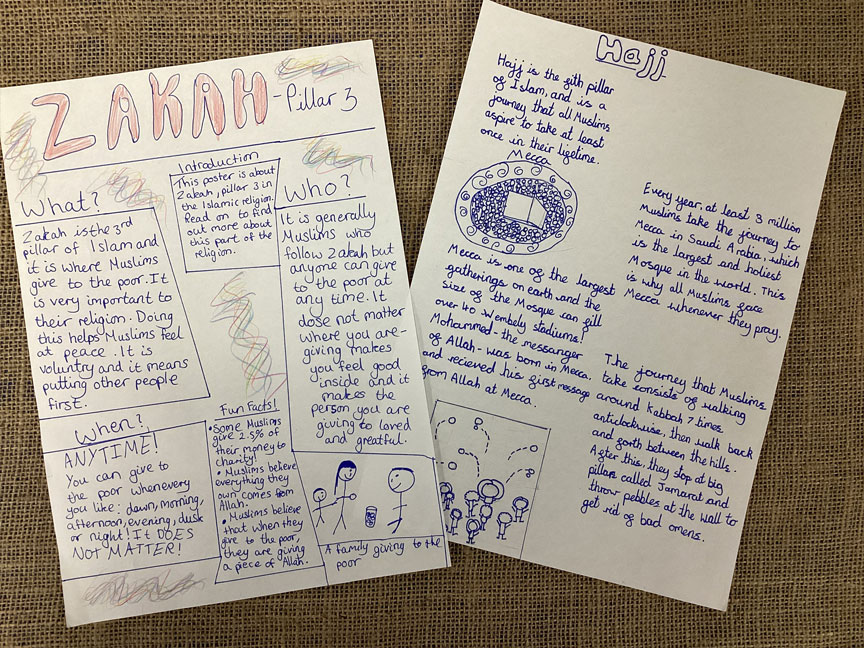 ZAKAH - Pillar 3
Introduction
This poster is about
Zakah, pillar 3 in
the Islamic religion.
Read on to find
out more about
this part of the
religion.
What?
Zakah is the 3rd
pillar of Islam and
it is where Muslims
give to the poor. It
is very important to
their religion. Doing
this helps Muslims feel
at peace. It is
voluntry and it means
putting other people
first.
Who?
It is generally
Muslims who
follow Zakah but
anyone can give
to the poor at
any time. It
dose not matter
where you are-
giving makes
you feel good
inside and it
makes the
person you are
giving to loved
and greatful.
When?
ANYTIME!
You can give to
the poor whenevery
you like: dawn, morning,
afternoon, evening, dusk
or night! It DOES
NOT MATTER!
Fun Facts!
• Some Muslims
give 2.5% of
their money to
charity!
• Muslims believe
everything they
own comes from
Allah.
• Muslims believe
that when they
give to the poor,
they are giving
a piece of Allah.
A family giving to the
poor
Hajj
Hajj is the fith pillar
of Islam, and is a
journey that all Muslims
aspire to take at least
once in their lifetime.
Mecca
Mecca is one of the largest
gatherings on earth and the
size of the Mosque can fill
over 40 Wembely stadiums!
Mohammed - the messanger
of Allah - was born in Mecca.
and recieved his first message
from Allah at Mecca.
Every year, at least 3 million
Muslims take the journey to
Mecca in Saudi Arabia, which
is the largest and holiest
Mosque in the world. This
is why all Muslims face
Mecca whenever they pray.
The journey that Muslims
take consists of walking
around Kabbah 7 times
anticlockwise, then walk back
and forth between the hills.
After this, they stop at big
pillars called Jamarat and
throw pebbles at the wall to
get rid of bad omens.